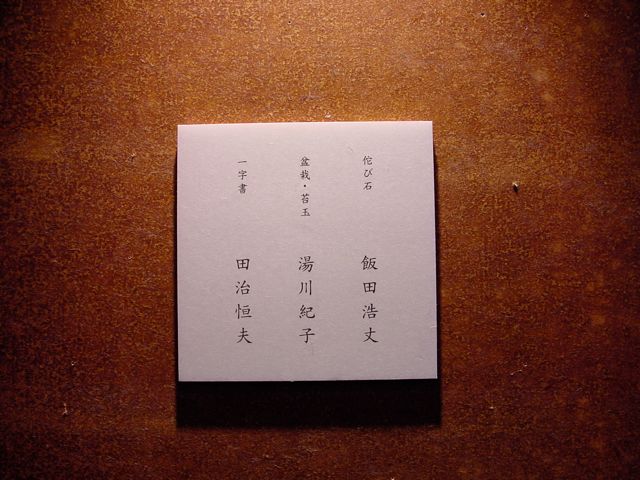 侘び石
飯田浩丈
盆栽・苔玉
湯川紀子
一字書
田治恒夫